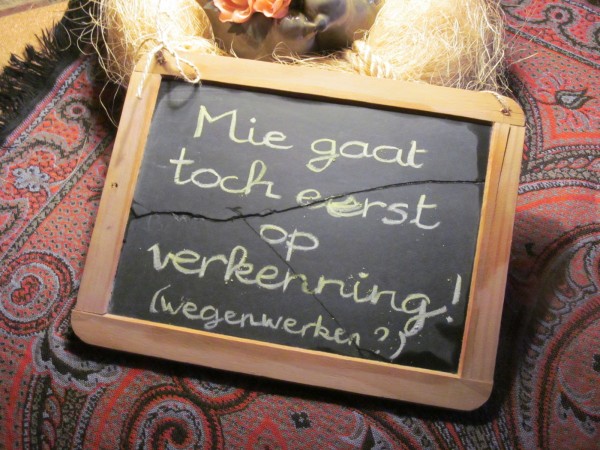 Mie gaat
toch eerst
op
verkenning!
(wegenwerken?)